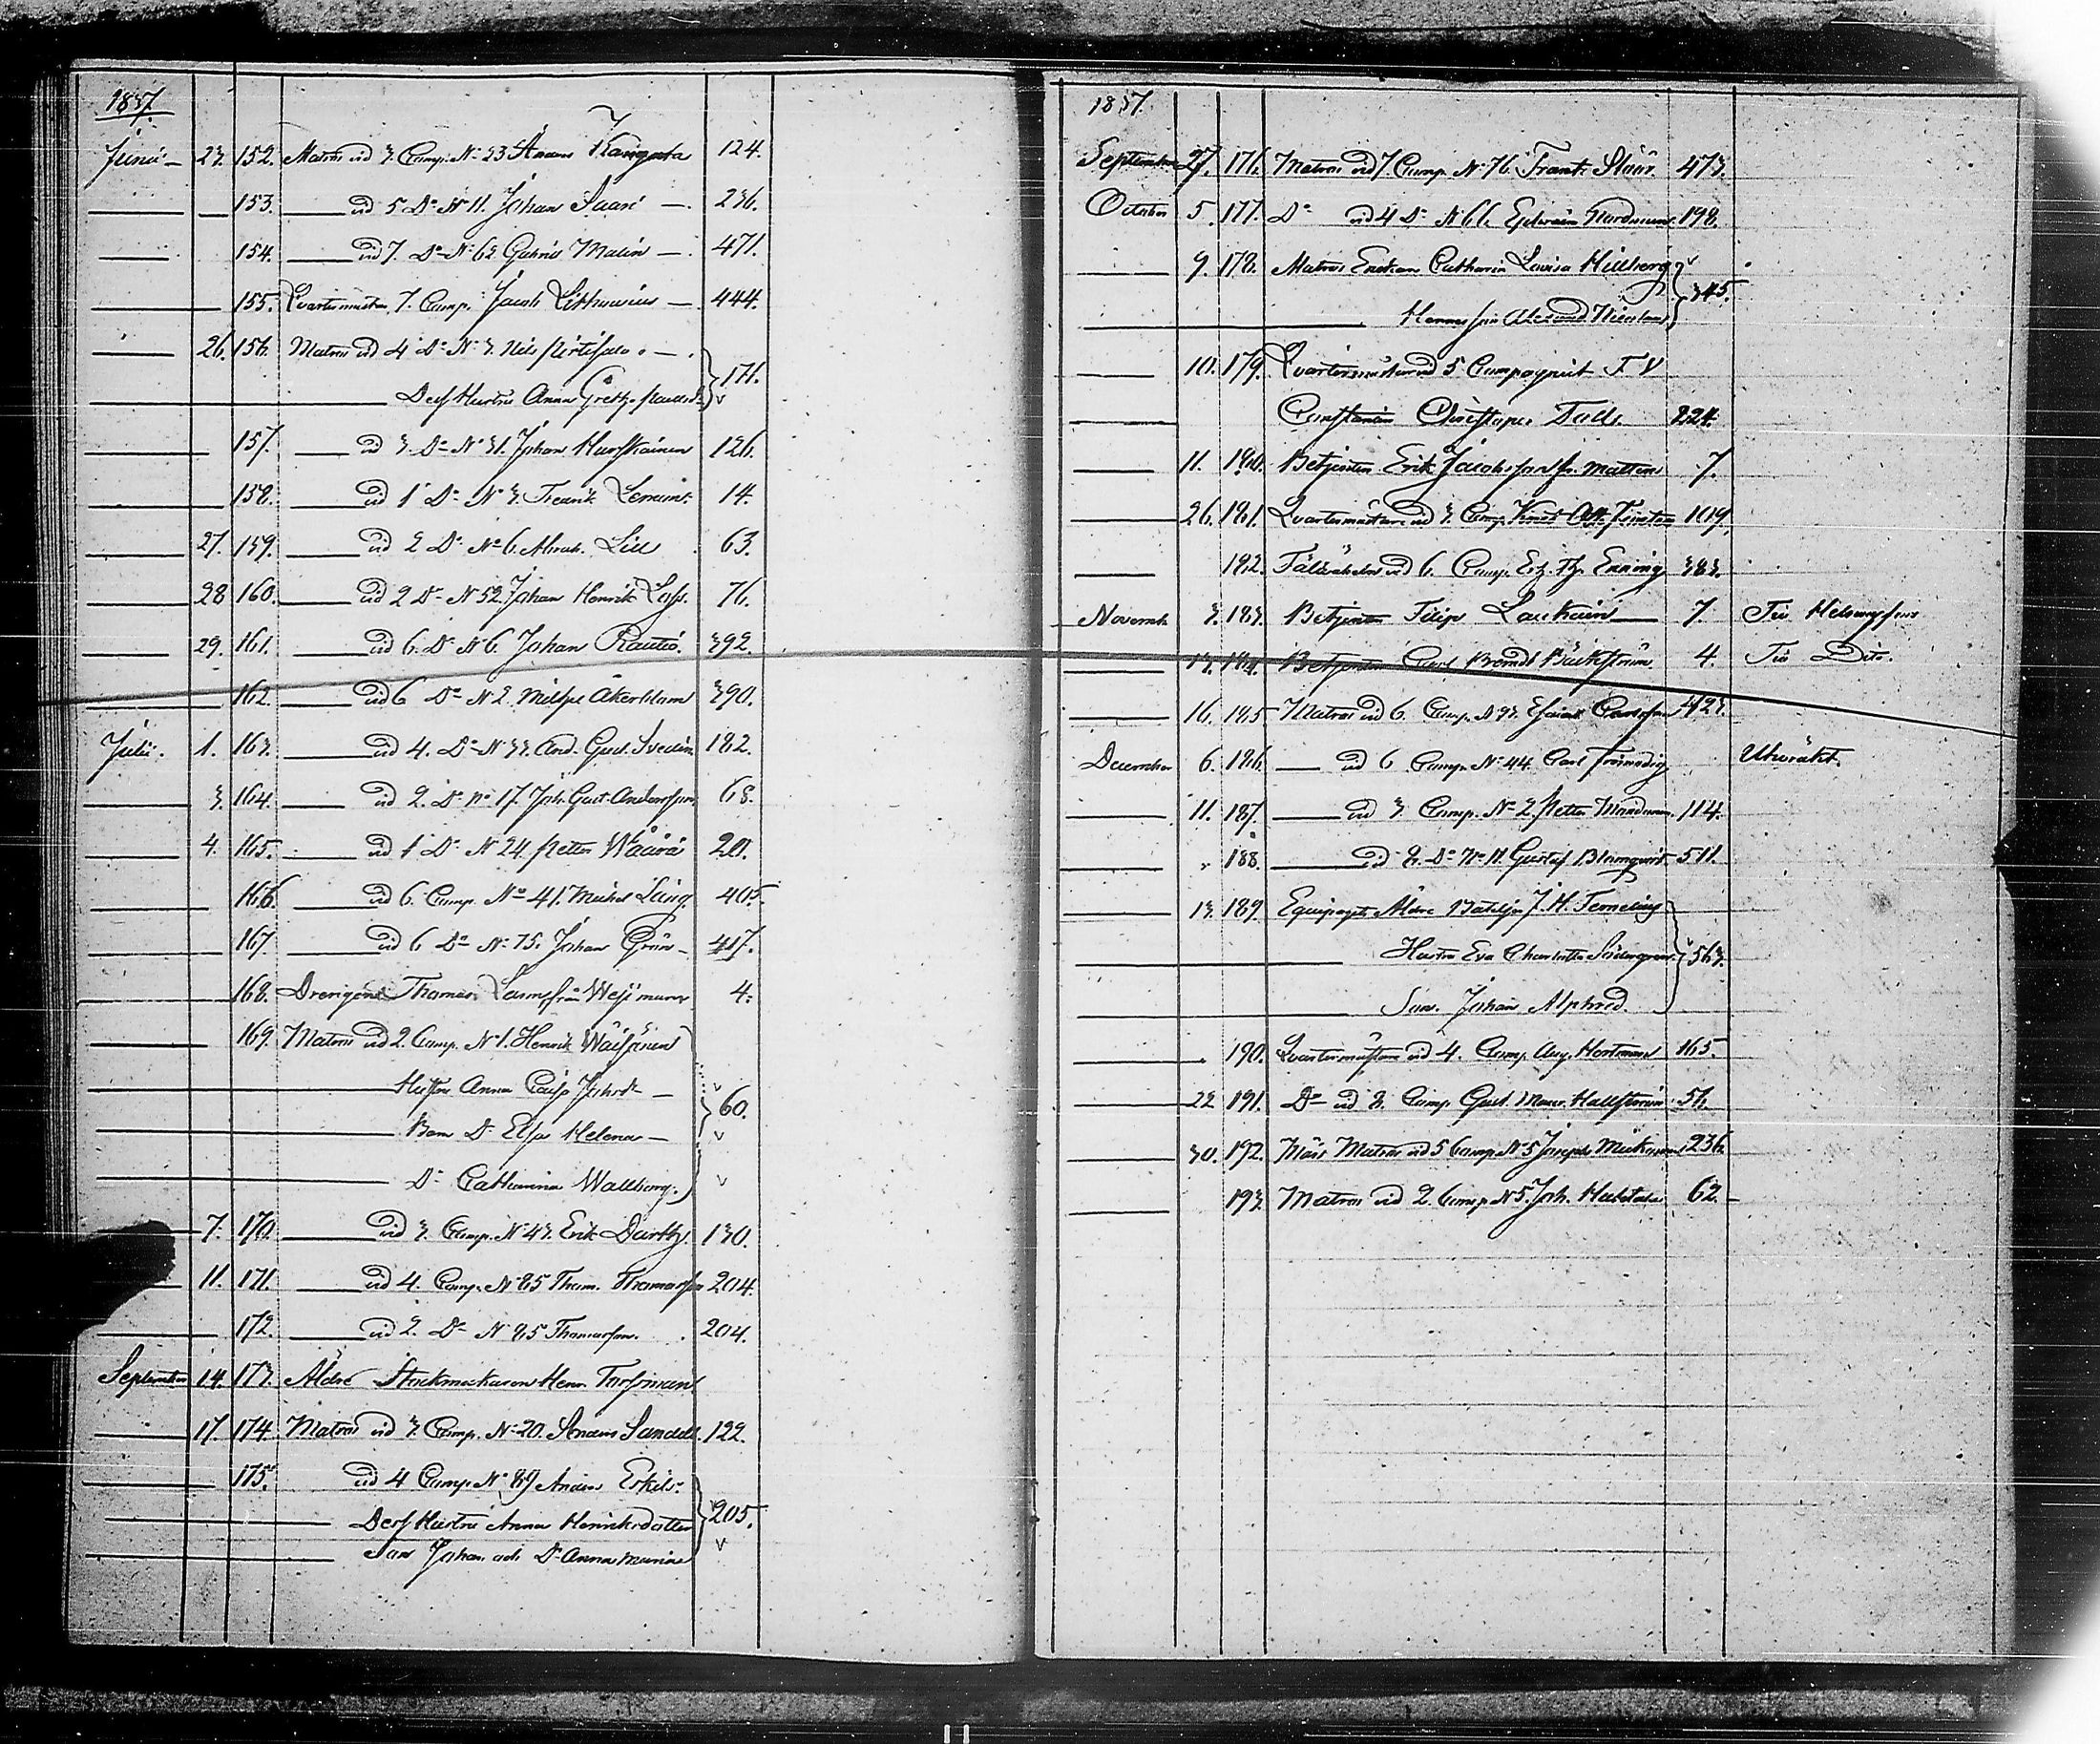 1837.
Junii 23. 152. Matros vid 3. Comp. No 23 Anders Kangasta 124.
153. vid 5 Do No 11. Johan Saari 236.
154. vid 7. Do No 62 Gabriel Malin 471.
155. Qvartermästar. 7. Comp. Jacob Lithovius 444.
26. 156. Matros vid 4 Do No 3. Nils
Dess Hustru Anna Greta 171.
157. vid 3. Do No 31. Johan Harskainen 126.
158. vid 1 Do No 3. Frank 14.
27. 159. vid 2 Do No 6. Abrah. Lill 63.
28 160. vid 2 Do No 52. Johan Henrik 76.
29. 161. vid 6. Do No 6. Johan Rautio. 392.
162. vid 6 Do No 2. Åkerblom 390.
Julii. 1. 163. vid 4. Do No 33. And. Gust. Svedin 182.
3 164. vid 2. Do No 17. Joh. Gust. Andersson 68.
4. 165. vid 1 Do No 24. Petter Wäärä 20.
166 vid 6. Comp. No 41. Michel Lång 405.
167. vid 6 Do No 75. Johan Grön 417.
168. Drengen Thomas från 4.
169. Matros vid 2. Comp. No 1. Henrik Wäisänen
Hustru Anna Caisa
Barn Dr Elsa Helena 60.
Dr Catharina Wallborg.
7. 170. vid 3. Comp. No 43. Erik 130.
11. 171. vid 4. Comp. No 85 Thom. Thomasson 204.
172. vid 2. Do No 85 Thomasson. 204.
September 14. 173. Äldre Stockmakaren Henr. Forsman
17. 174. Matros vid 3. Comp. No 20. Anders Sandell. 122.
175. vid 4 Comp. No 89 Anders Eskils
Dess Hustru Anna Henriksdotter 205.
Son Johan och Dr Anna Maria
1837.
September 27. 176. Matros vid 7. Comp. No 76. Frantz Stäär 473.
October 5. 177. Do vid 4 Do No 66. Ephraim Nordman 198.
9. 178. Matros Enckan Catharin Lovisa Hillberg
Hennes son Alexand Nicolaus 345.
10. 179. Qvartermästar vid 5 Compagniet F V
Constantin Christopher Talls 224.
11. 180. Betjenten Erik Jacobsson 7.
26. 181. Qvartermästare vid 3. Comp. 109.
182. Fältväbeln vid 6. Comp. Enning 383.
Novemb. 3. 183. Betjenten Filip Laukain 7. Till Helsingfors
13. 184. Betjenten Carl Berndt Bäckström 4. Till Dito.
16. 185 Matros vid 6. Comp. No 93. Carlsson 423.
December 6. 186. vid 6 Comp. No 44. Carl Frimodig Utvräkt.
11. 187. vid 3. Comp. No 2. Petter 114.
188. vid 8. Do No 11. Gustaf Blomqvist 511.
13. 189. Equipagets Äldre J. H. Ferneling
Hustru Eva Charlotta Södergren 563.
Son. Johan Alphred.
190. Qvartermästare vid 4. Comp. Aug. Hartman 165.
22 191. Do vid 2. Comp. Gust. Maur. Hallström 56.
30. 192. Matros vid 5 Comp. No 5 Joseph 236.
193. Matros vid 2. Comp. No 5. Joh. 62